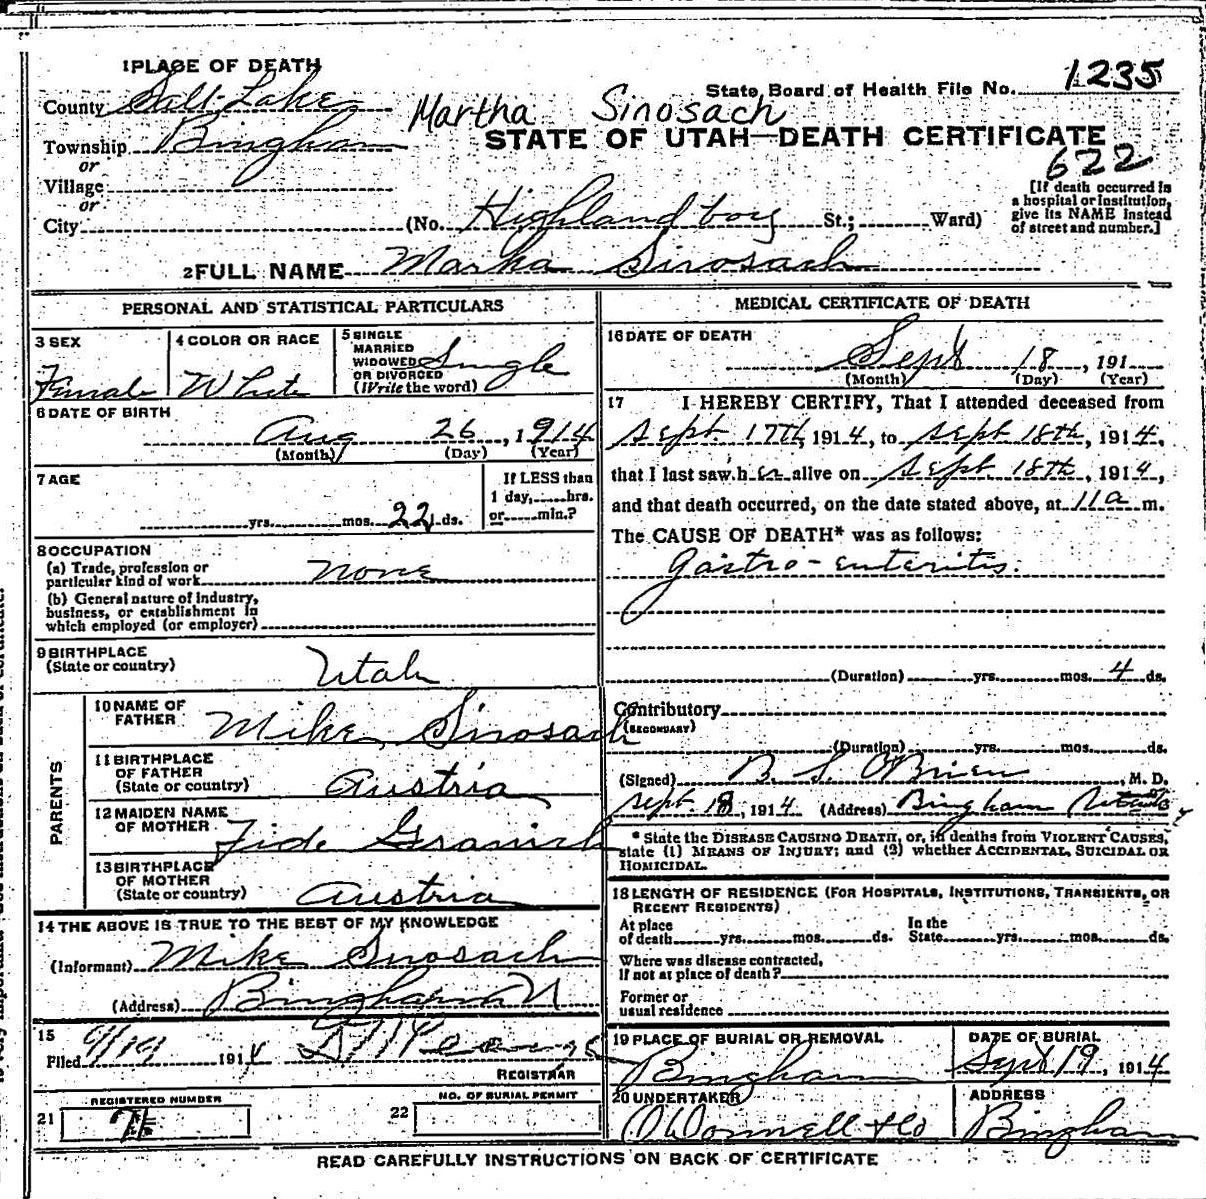 1 PLACE OF DEATH
County Salt Lake
State Board of Health File No. 1235
Martha Sinosach
Township Bingham
STATE OF UTAH—DEATH CERTIFICATE
or
622
Village
or
City (No. Highland boy St.; Ward)
[If death occurred in a hospital or institution, give its NAME instead of street and number.]
2 FULL NAME Marka Sinosach
PERSONAL AND STATISTICAL PARTICULARS
3 SEX
Female
4 COLOR OR RACE
White
5 SINGLE
MARRIED
WIDOWED
OR DIVORCED
(Write the word)
Single
6 DATE OF BIRTH
Aug 26, 1914
(Month) (Day) (Year)
7 AGE
yrs. mos. 22 ds.
If LESS than
1 day, hrs.
or min.?
8 OCCUPATION
(a) Trade, profession or
particular kind of work None
(b) General nature of industry,
business, or establishment in
which employed (or employer)
9 BIRTHPLACE
(State or country)
Utah
PARENTS
10 NAME OF
FATHER
Mike Sinosach
11 BIRTHPLACE
OF FATHER
(State or country)
Austria
12 MAIDEN NAME
OF MOTHER
13 BIRTHPLACE
OF MOTHER
(State or country)
Austria
14 THE ABOVE IS TRUE TO THE BEST OF MY KNOWLEDGE
(Informant) Mike Sinosach
(Address) Bingham U
15
Filed 9/19 1914
REGISTRAR
REGISTERED NUMBER
21
NO. OF BURIAL PERMIT
22
MEDICAL CERTIFICATE OF DEATH
16 DATE OF DEATH
Sept 18, 191
(Month) (Day) (Year)
17 I HEREBY CERTIFY, That I attended deceased from
Sept. 17th, 1914, to Sept 18th, 1914,
that I last saw her alive on Sept 18th, 1914,
and that death occurred, on the date stated above, at 11 a m.
The CAUSE OF DEATH* was as follows:
Gastro-enteritis.
(Duration) yrs. mos. 4 ds.
Contributory
(SECONDARY)
(Duration) yrs. mos. ds.
(Signed) B. S. O'Brien, M. D.
Sept 18, 1914 (Address) Bingham
* State the DISEASE CAUSING DEATH, or, in deaths from VIOLENT CAUSES,
state (1) MEANS OF INJURY; and (2) whether ACCIDENTAL, SUICIDAL OR
HOMICIDAL.
18 LENGTH OF RESIDENCE (FOR HOSPITALS, INSTITUTIONS, TRANSIENTS, OR
RECENT RESIDENTS)
At place
of death yrs. mos. ds.
In the
State yrs. mos. ds.
Where was disease contracted,
if not at place of death?
Former or
usual residence
19 PLACE OF BURIAL OR REMOVAL
Bingham
DATE OF BURIAL
Sept 19, 1914
20 UNDERTAKER
O'Donnell & Co
ADDRESS
Bingham
READ CAREFULLY INSTRUCTIONS ON BACK OF CERTIFICATE